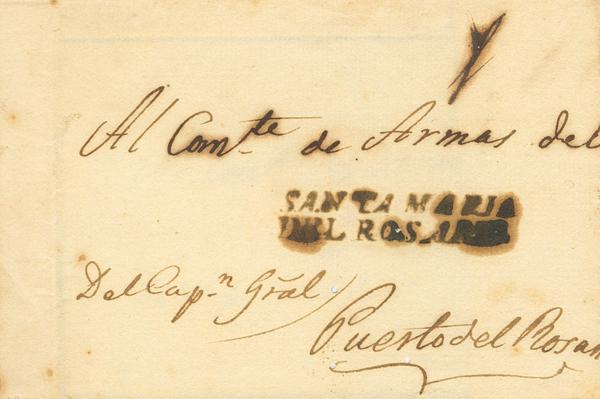 Al Com.te de Armas del
SANTA MARIA
DEL ROSARIO
Del Cap.n Gral
Puerto del Rosar